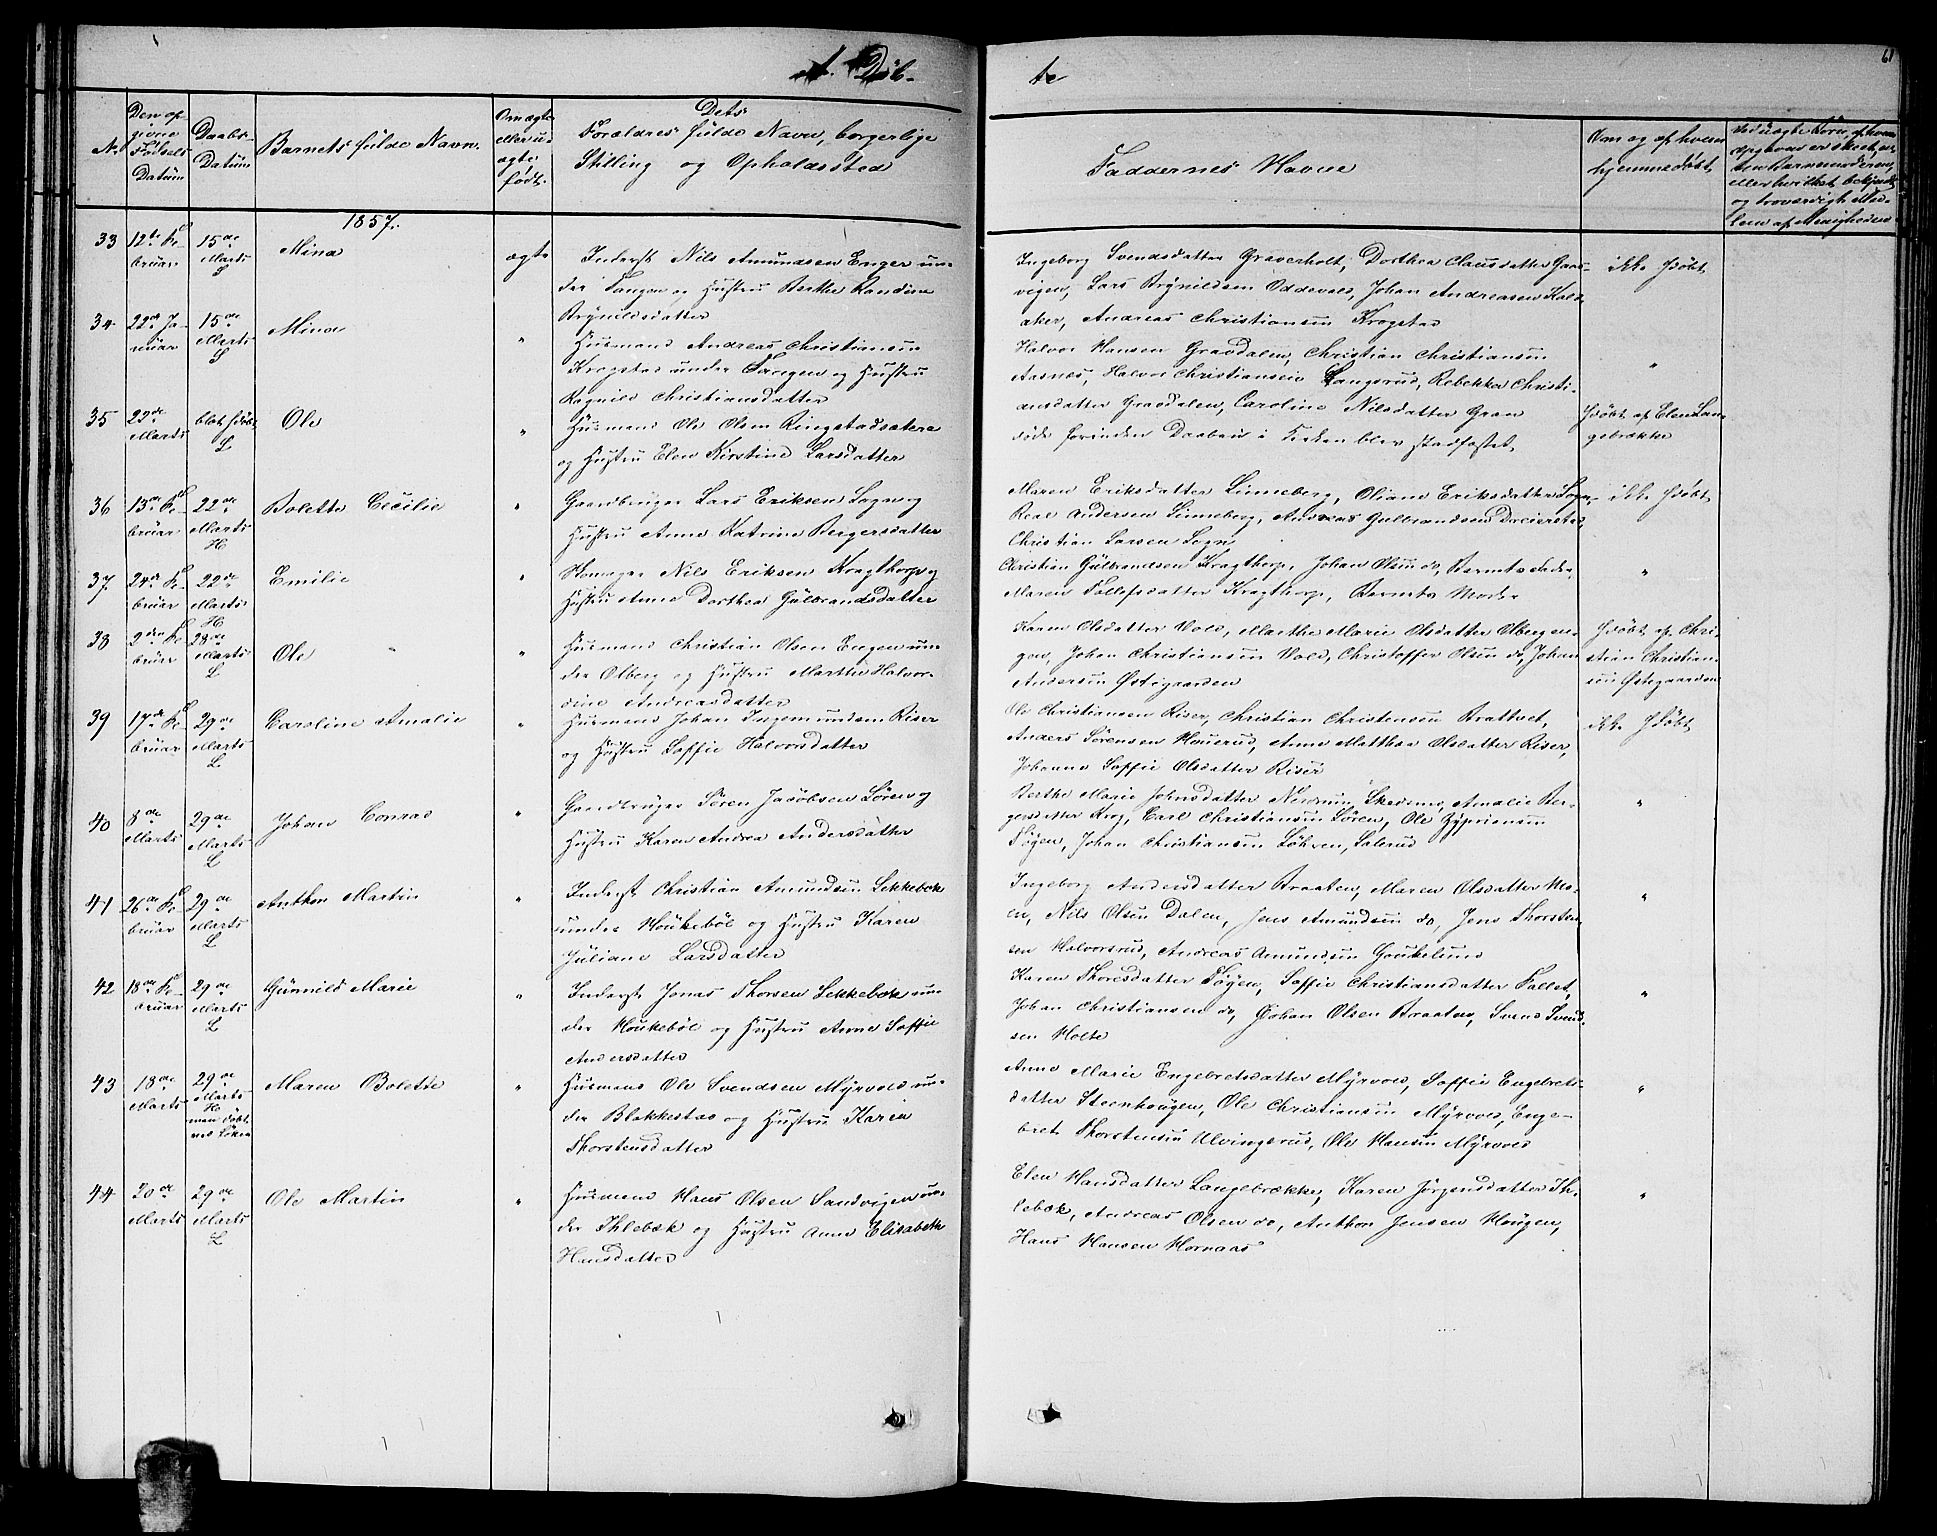 A. Döb-
te
61
No.
Den op-
givne
Födsels
Datüm
Daabs-
Datüm
Barnets fülde Navn.
Om ægte
eller u-
ægte
född.
Dets
Forældres fülde Navn, borgerlige
Stilling og Opholdssted
Faddernes Navne
Om og af hvem
hjemmedöbt
1857.
33
12te Fe-
bruar
15de
Marts
L
Mina
ægte
Inderst Nils Amundsen Enger un-
der Tangen og Hustru Berthe Randine
Brynildsdatter
Ingeborg Svendsdatter Graverholt, Dorthea Clausdatter Gaas-
vigen, Lars Brynildsen Oddevald, Johan Andreasen Kold-
aker, Andreas Christiansen Krogstad
ikke hdöbt
34
22de Ja-
nuar
15de
Marts
L
Mina
"
Husmand Andreas Christiansen
Krogstad under Tangen og Hustru
Ragnild Christiansdatter
Halvor Hansen Gravdalen, Christian Christiansen
Aasnæs, Halvor Christiansen Langsrud, Rebekka Christi-
ansdatter Gravdalen, Caroline Nilsdatter Gran
"
35
22de
Marts
blot hdöbt
L
Ole
"
Husmand Ole Olsen Ringstadsætere
og Hustru Elen Kirstine Larsdatter
döde forinden Daaben i Kirken blev stadfæstet,
hdöbt af Elen Lan-
gebrække
36
13de Fe-
bruar
22de
Marts
H
Bolette Cecilie
"
Gaardbruger Lars Eriksen Sogn og
Hustru Anne Katrine Bergersdatter
Maren Eriksdatter Linneberg, Oliane Eriksdatter Sogn,
Real Andersen Linneberg, Andreas Gulbrandsen Dreierstad
Christian Larsen Sogn
ikke hdöbt
"
37.
24de Fe-
bruar
22de
Marts
H
Emilie
"
Nils Eriksen Kragthorp og
Hustru Anne Dorthea Gulbrandsdatter
Christian Gulbrandsen Kragthorp, Johan Olsen do, Barnets Fader,
Maren Tollefsdatter Kragthorp, Barnets Moder
"
38
2den Fe-
bruar
28de
Marts
L
Ole
"
Husmand Christian Olsen Engen un-
der Olberg og Hustru Marthe Halvor-
dine Andreasdatter
Karen Olsdatter Vold, Marthe Marie Olsdatter Olbergen-
gen, Johan Christiansen Vold, Christoffer Olsen do, Johan
Andersen Östegaarden
hdöbt af Chri-
stian Christian-
sen Östegaarden
39
17de Fe-
bruar
29de
Marts
L
Caroline Amalie
"
Husmand Johan Ingemundsen Riser
og Hustru Soffie Halvorsdatter
Ole Christiansen Riser, Christian Christensen Brattvet,
Anders Sörensen Houerud, Anne Mathea Olsdatter Riser,
Johanne Soffie Olsdatter Riser
ikke hdöbt
40
8de
Marts
29de
Marts
L
Johan Conrad
"
Gaardbruger Sören Jacobsen Lören og
Hustru Karen Andrea Andersdatter
Berthe Marie Johnsdatter Nordrum Skedsmo, Amalie Ber-
gersdatter Krog, Carl Christiansen Lören, Ole Zyprinsen
Högen, Johan Christiansen Löhren, Solerud
"
41
26de Fe-
bruar
29de
Marts
L
Anthon Martin
"
Inderst Christian Amundsen Sikkebæk
under Houkeböl og Hustru Karen
Juliane Larsdatter
Ingeborg Andersdatter Braaten, Maren Olsdatter Mo-
en, Nils Olsen Dalen, Jens Amundsen do, Jens Thorsten-
sen Halvorsrud, Andreas Amundsen Goukelund
"
42
18de Fe-
bruar
29de
Marts
L
Gunnild Marie
"
Inderst Jonas Thorsen Sikkebæk un-
der Houkeböl og Hustru Anne Soffie
Andersdatter
Karen Thoresdatter Högen, Soffie Christiansdatter Fallet,
Johan Christiansen do, Johan Olsen Braaten, Svend Svend-
sen Holte
"
43
18de
Marts
29de
Marts
H
Maren Bolette
"
Husmand Ole Svendsen Myrvold un-
der Blakkestad og Hustru Karen
Thorstensdatter
Anne Marie Engebretsdatter Myrvold, Soffie Engebrets-
datter Steenhougen, Ole Christiansen Myrvold, Enge-
bret Thorstensen Alvingsrud, Ole Hansen Myrvold
"
44
20de
Marts
29de
Marts
L
Ole Martin
"
Husmand Hans Olsen Sandvigen un-
der Ihlebæk og Hustru Anne Elisabeth
Hansdatter
Elen Hansdatter Langebrække, Karen Jörgensdatter Ih-
lebæk, Andreas Olsen do, Anthon Jensen Hougen,
Hans Hansen Hornaas
"